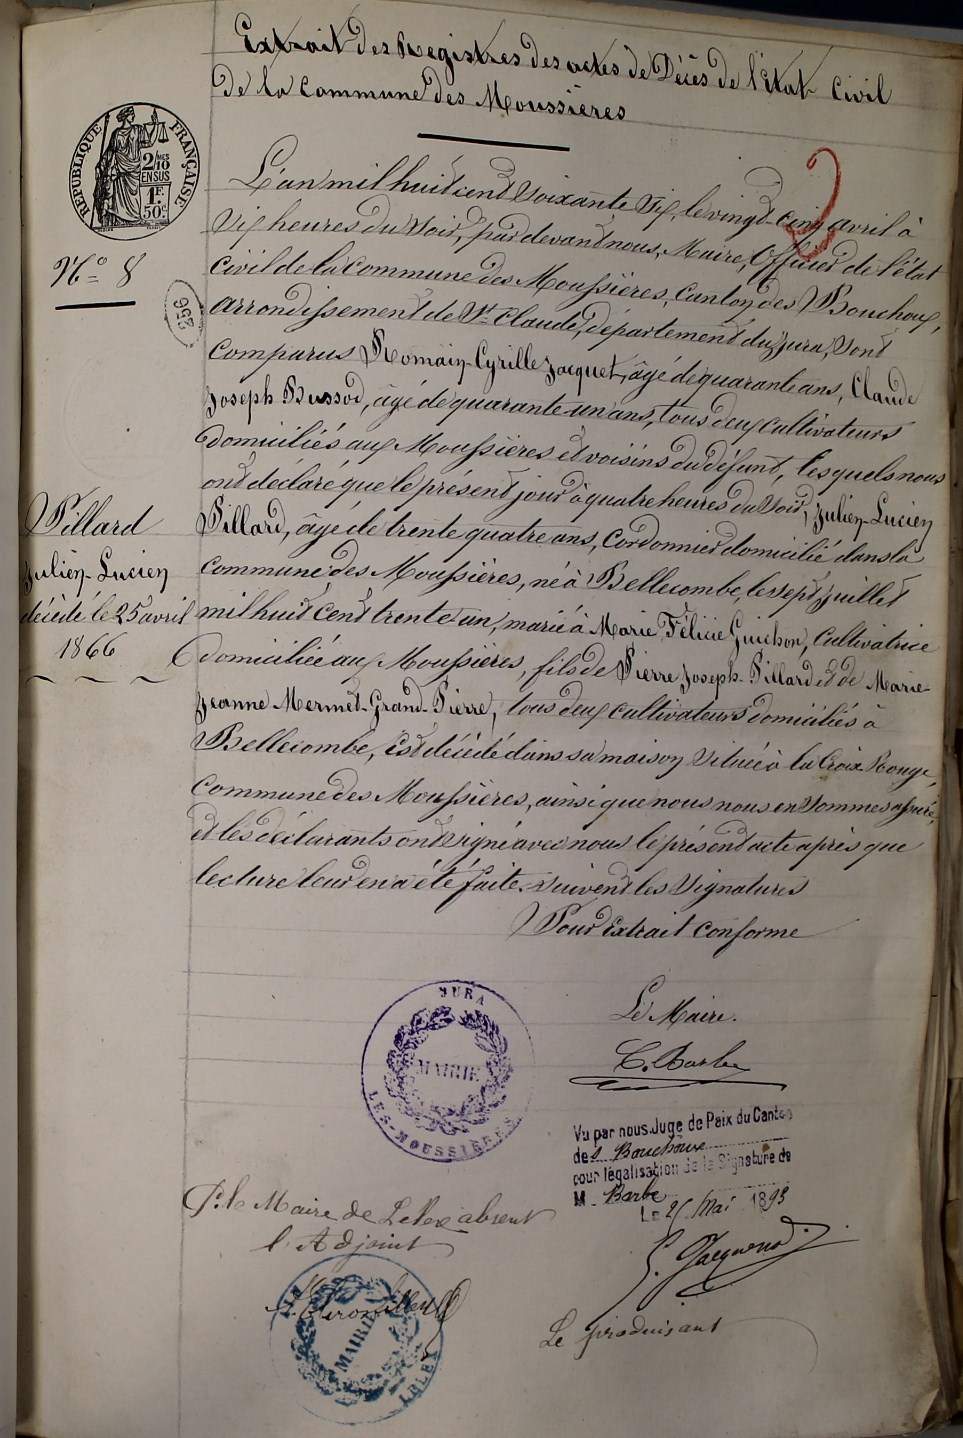 Extrait des Registres des actes de Décès de l'Etat Civil
de la Commune des Moussières
RÉPUBLIQUE FRANÇAISE
2/10 MES
EN SUS
1F.
50c
N° 8
256
L'an mil huit cent soixante six, le vingt-cinq avril à
six heures du soir, par devant nous, Maire, Officier de l'état
civil de la commune des Moussières, canton des Bouchoux,
arrondissement de St Claude, département du Jura, sont
comparus Romain-Cyrille Jacquet, âgé de quarante ans, Claude
Joseph Bussod, âgé de quarante-un ans, tous deux cultivateurs
domiciliés aux Moussières et voisins du défunt, lesquels nous
ont déclaré que le présent jour à quatre heures du soir, Julien-Lucien
Pillard, âgé de trente quatre ans, Cordonnier domicilié dans la
commune des Moussières, né à Bellecombe, le sept juillet
mil huit cent trente un, marié à Marie Félicie Guichon, cultivatrice
domiciliée aux Moussières, fils de Pierre Joseph-Pillard et de Marie-
Jeanne Mermet-Grand-Pierre, tous deux cultivateurs domiciliés à
Bellecombe, est décédé dans sa maison située à la Croix Rouge,
commune des Moussières, ainsi que nous nous en sommes assuré,
et les déclarants ont signé avec nous le présent acte après que
lecture leur en a été faite. Suivent les signatures
Pillard
Julien-Lucien
décédé le 25 avril
1866
Pour Extrait conforme
Le Maire.
C. Barbe
JURA
MAIRIE
LES-MOUSSIÈRES
Vu par nous Juge de Paix du Canton
des Bouchoux
pour légalisation de la Signature de
M. Barbe
Le 25 Mai 1893
Pr. le Maire de Lelex absent
l'Adjoint
AIN
MAIRIE
LELEX
Le produisant